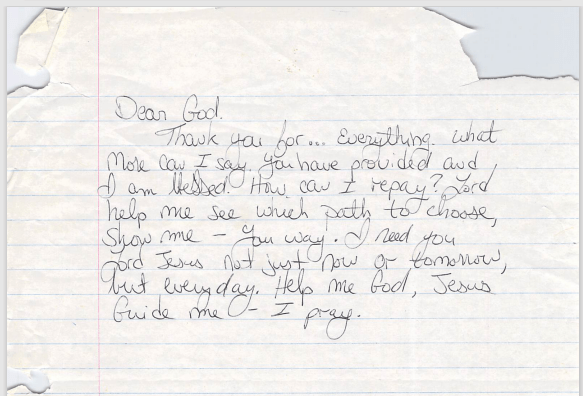 Dear God.
Thank you for... Everything. What
More can I say. You have provided and
I am blessed. How can I repay? Lord
help me see which path to choose,
Show me - You way. I need you
Lord Jesus not just now or tomorrow,
but everyday. Help me God, Jesus
Guide me - I pray.